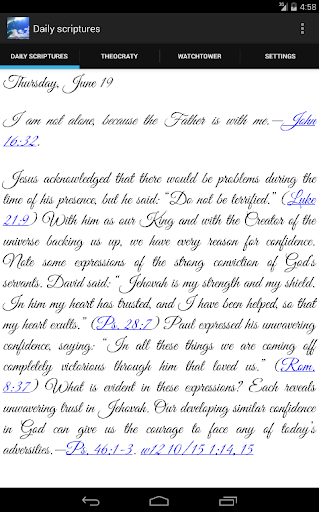 3G 4:58
Daily scriptures
DAILY SCRIPTURES THEOCRATY WATCHTOWER SETTINGS
Thursday, June 19
I am not alone, because the Father is with me.—John
16:32.
Jesus acknowledged that there would be problems during the
time of his presence, but he said: “Do not be terrified.” (Luke
21:9) With him as our King and with the Creator of the
universe backing us up, we have every reason for confidence.
Note some expressions of the strong conviction of God’s
servants. David said: “Jehovah is my strength and my shield.
In him my heart has trusted, and I have been helped, so that
my heart exults.” (Ps. 28:7) Paul expressed his unwavering
confidence, saying: “In all these things we are coming off
completely victorious through him that loved us.” (Rom.
8:37) What is evident in these expressions? Each reveals
unwavering trust in Jehovah. Our developing similar confidence
in God can give us the courage to face any of today’s
adversities.—Ps. 46:1-3. w12 10/15 1:14, 15